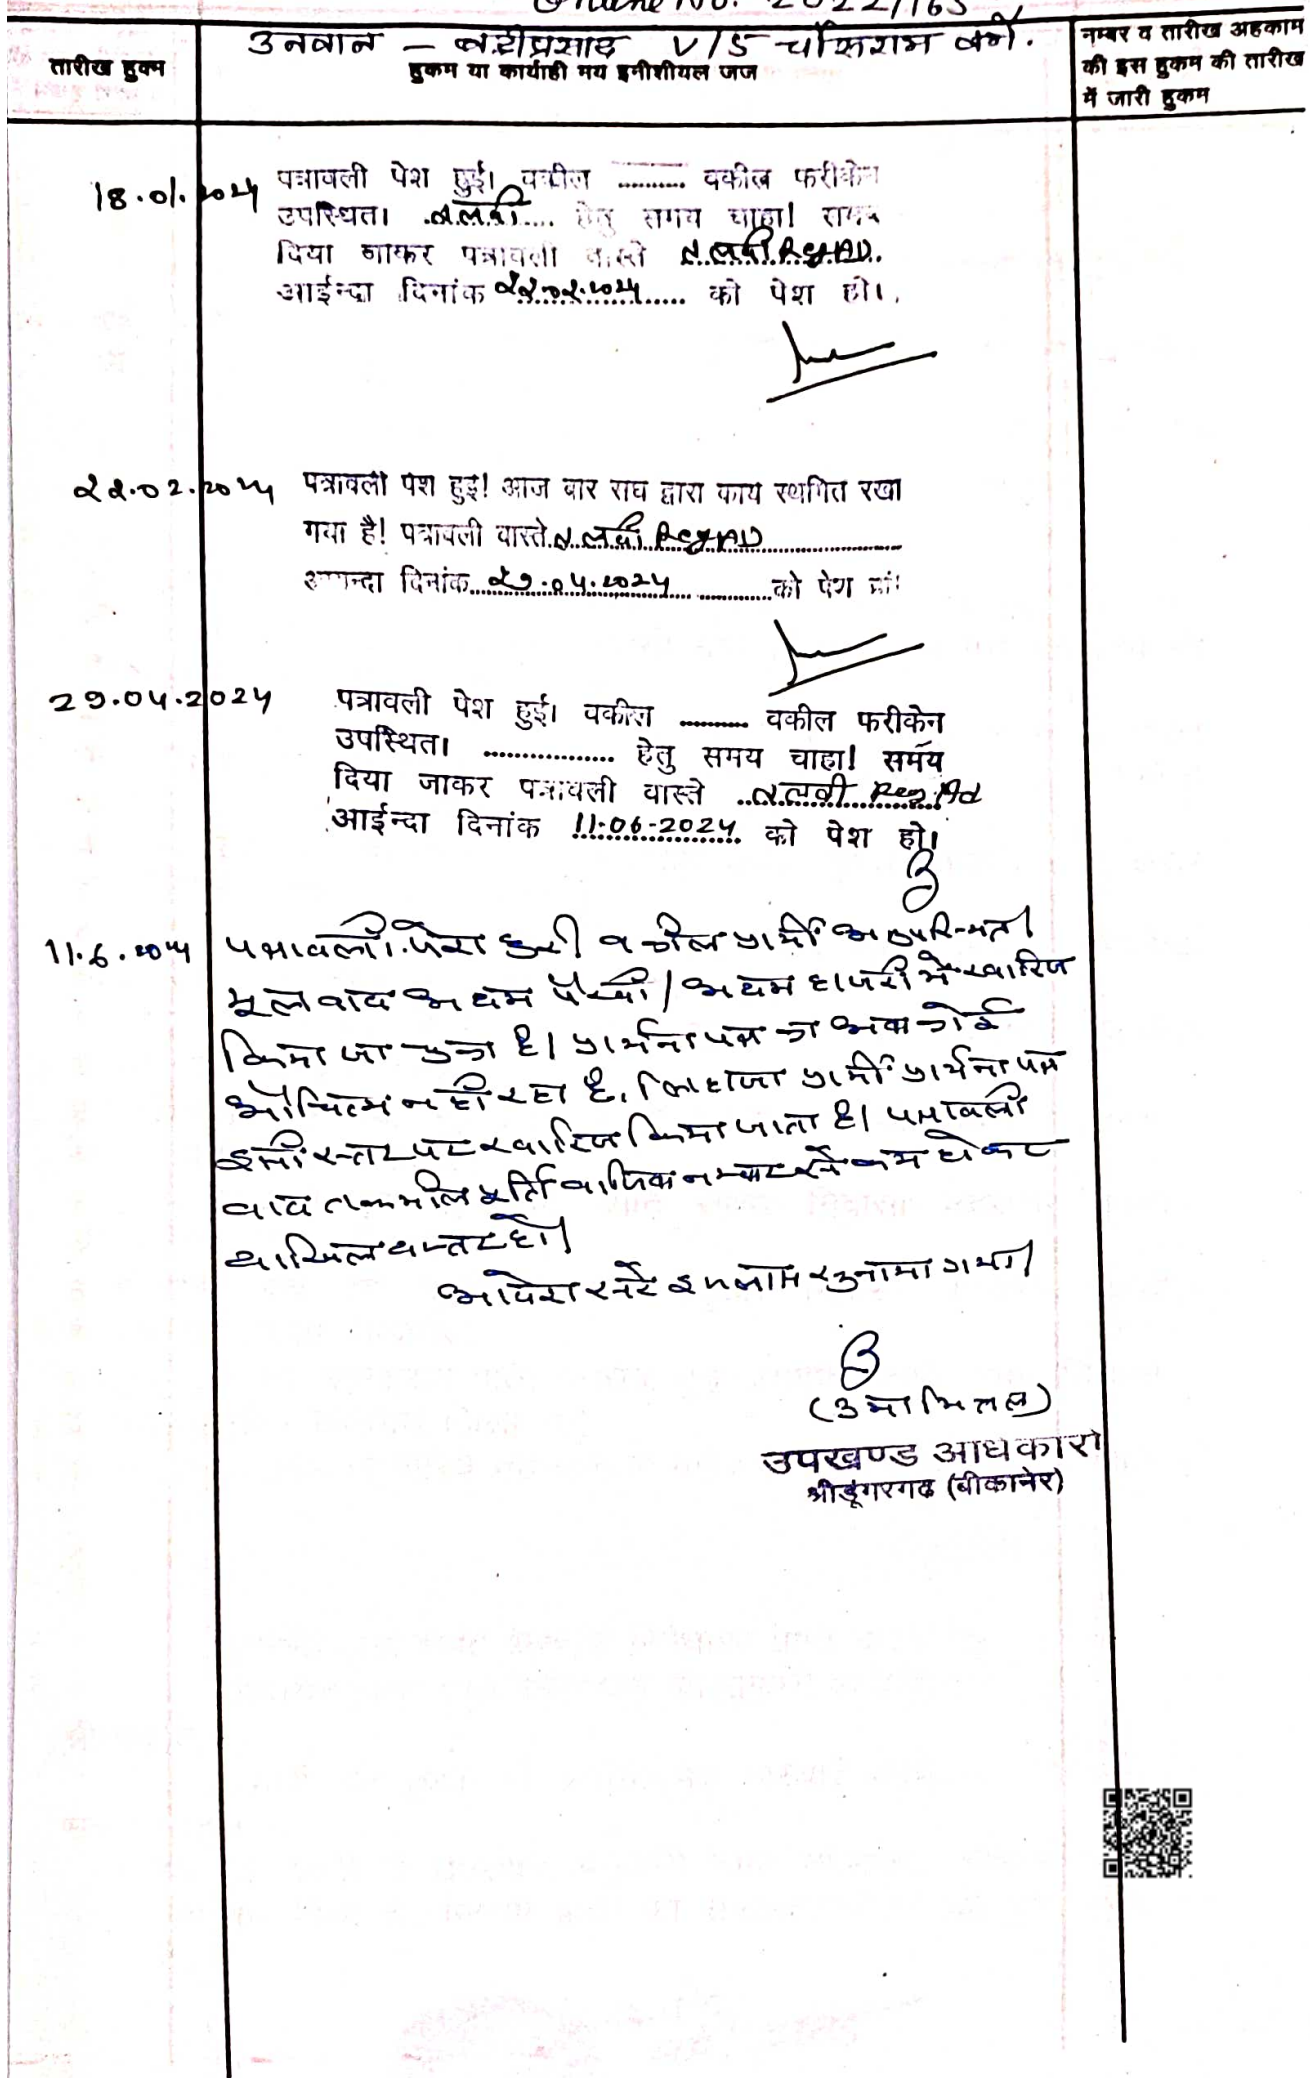 Online No. 2022/165
उनवान – बद्रीप्रसाद V/S चौरूराम वगै.
तारीख हुक्म
हुकम या कार्याही मय इनीशीयल जज
नम्बर व तारीख अहकाम
की इस हुकम की तारीख
में जारी हुकम
18.01.2024
पत्रावली पेश हुई। वकील .......... वकील फरीकेन
उपस्थित। .तलबी.... हेतु समय चाहा! समय
दिया जाकर पत्रावली वास्ते तलबी Reg AD.
आईन्दा दिनांक 22.02.2024 ...... को पेश हो।
22.02.2024
पत्रावली पेश हुई! आज बार संघ द्वारा कार्य स्थगित रखा
गया है! पत्रावली वास्ते तलबी Reg AD
आईन्दा दिनांक 29.04.2024 को पेश हो!
29.04.2024
पत्रावली पेश हुई। वकील .......... वकील फरीकेन
उपस्थित। ................. हेतु समय चाहा! समय
दिया जाकर पत्रावली वास्ते तलबी Reg. Ad
आईन्दा दिनांक 11-06-2024 को पेश हो।
11.6.2024
पत्रावली पेश हुई। वकील प्रार्थी अनुपस्थित।
मूलवाद अदम पैरवी/अदम हाजरी में खारिज
किया जा चुका है। प्रार्थना पत्र का अब कोई
औचित्य नहीं रहा है, लिहाजा प्रार्थी प्रार्थना पत्र
इसी स्तर पर खारिज किया जाता है। पत्रावली
बाद तकमील पूर्ति वाजिब नम्बर से कम होकर
दाखिल दफ्तर हो।
आदेश सरे इजलास सुनाया गया।
(उमा मित्तल)
उपखण्ड अधिकारी
श्रीडूंगरगढ (बीकानेर)